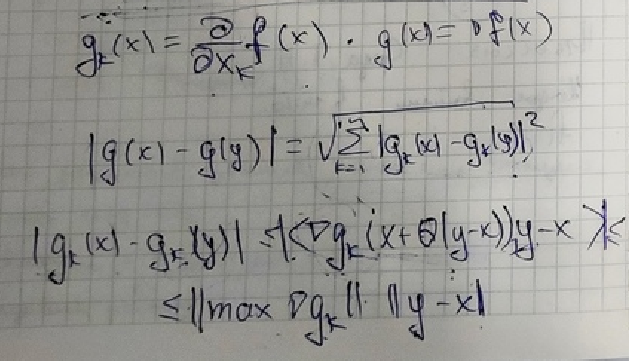 gₖ(x) = ∂/∂xₖ f(x) . g(x) = ∇f(x)
|g(x) - g(y)| = √(∑ₖ₌₁ⁿ |gₖ(x) - gₖ(y)|²)
|gₖ(x) - gₖ(y)| ≤ |<∇gₖ(x+θ(y-x)), y-x>| ≤
≤ ||max ∇gₖ|| ||y - x||